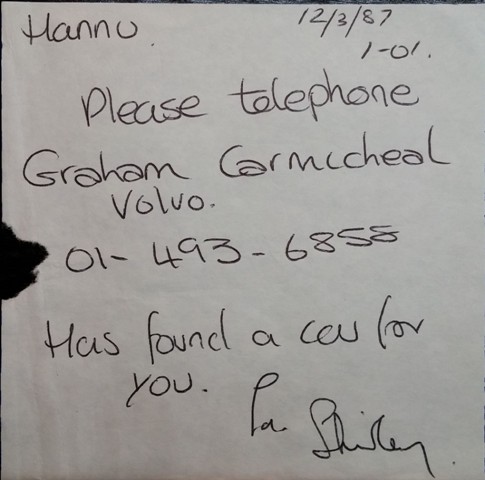 Hannu.
12/3/87
1-01.
Please telephone
Graham Carmicheal
Volvo.
01-493-6858
Has found a car for
you.
Shirley.